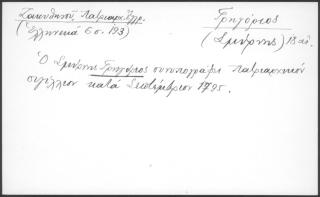 Ζακυθηνοῦ, Πατριαρχ. Ἔγγρ.
(Ἑλληνικά 6 σ. 193)
Γρηγόριος
(Σμύρνης) 18 αἰ.
Ὁ Σμύρνης Γρηγόριος συνυπογράφει πατριαρχικόν
σιγίλλιον κατά Σεπτέμβριον 1795.